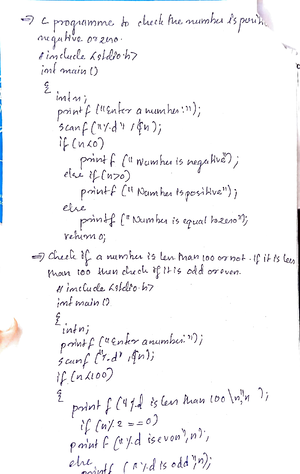 ⇒ C programme to check the number is positi
negative or zero.
# include <stdio.h>
int main ()
{
int n;
printf ("Enter a number:");
scanf ("%d", &n);
if (n<0)
printf ("Number is negative");
else if (n>0)
printf ("Number is positive");
else
printf ("Number is equal to zero");
return 0;
⇒ Check if a number is less than 100 or not. If it is less
than 100 then check if it is odd or even.
# include <stdio.h>
int main ()
{
int n;
printf ("Enter a number:");
scanf ("%d", &n);
if (n<100)
{
printf ("%d is less than 100 \n", n );
if (n% 2 == 0)
printf ("%d is even", n);
else
printf ("%d is odd", n);